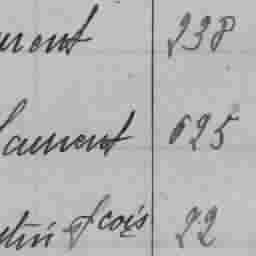 urent 238
Laurent 625
stin fcois 22